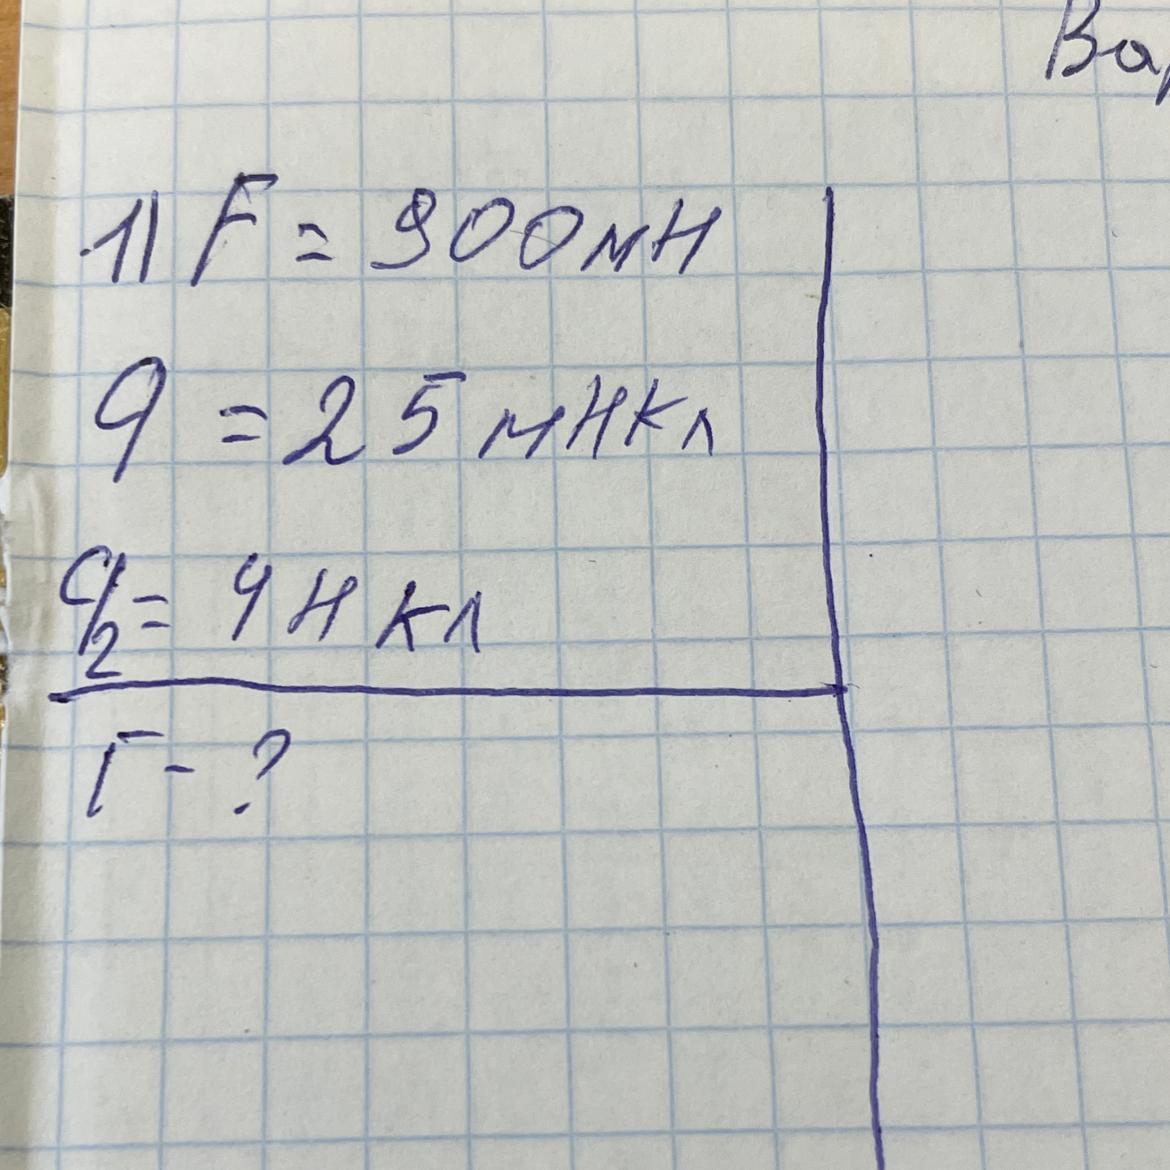 Вар
1) F = 900мН
q = 25 мНКл
q2 = 4 Н Кл
r - ?